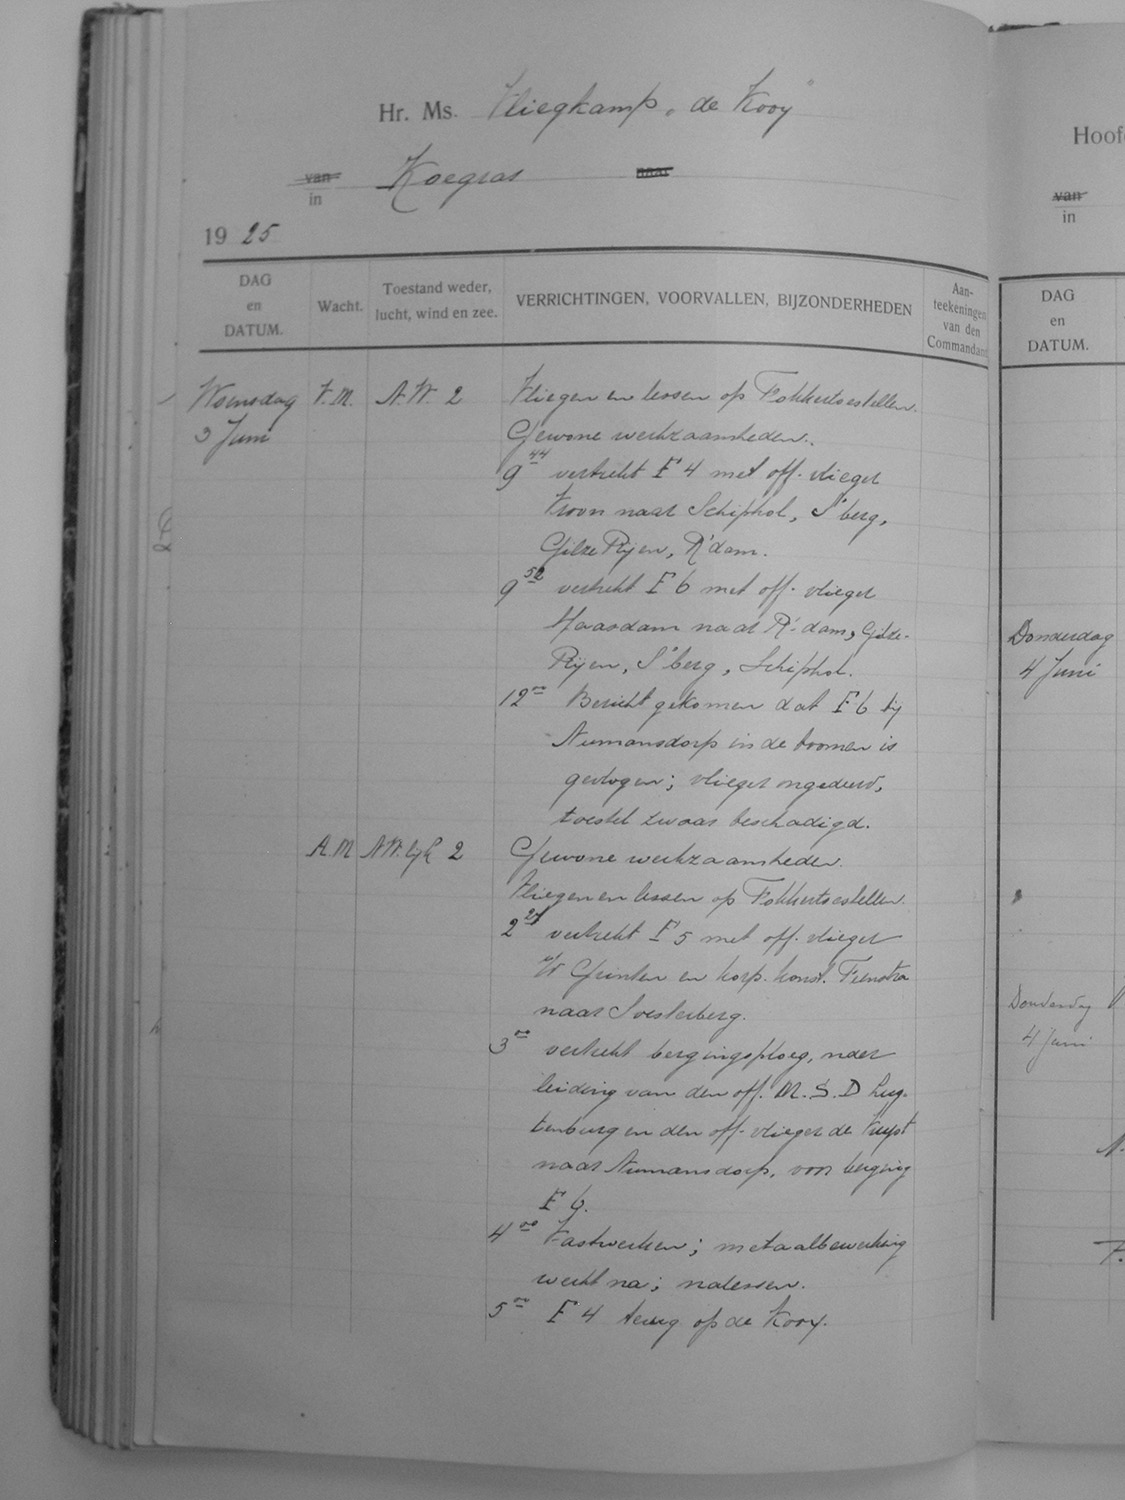 Hr. Ms. Vliegkamp „de Kooy"
van Koegras naar
in
19 25
DAG en DATUM. Wacht. Toestand weder, lucht, wind en zee. VERRICHTINGEN, VOORVALLEN, BIJZONDERHEDEN Aanteekeningen van den Commandant
Woensdag V.M. N.W. 2 Vliegen en lessen op Fokkertoestellen.
3 Juni Gewone werkzaamheden.
9 44 vertrekt F 4 met off. vlieger
Kroon naar Schiphol, S'berg,
Gilze Rijen, R'dam.
9 52 vertrekt F 6 met off. vlieger
Haasdam naar R'dam, Gilze-
Rijen, S'berg, Schiphol.
12 00 Bericht gekomen dat F 6 bij
Numansdorp in de boomen is
gevlogen; vlieger ongedeerd,
toestel zwaar beschadigd.
A.M. N.W. 2 Gewone werkzaamheden.
Vliegen en lessen op Fokkertoestellen.
2 27 vertrekt F 5 met off. vlieger
en korp. konst. Feenstra
naar Soesterberg.
3 00 vertrekt bergingsploeg, onder
leiding van den off. M.S.D Lug-
tenburg en den off. vlieger de
naar Numansdorp, voor berging
F 6.
4 00 Vastwerken; metaalbewerking
werkt na; nalessen.
5 00 F 4 terug op de Kooy.
Hoof
van
in
DAG
en
DATUM.
Donderdag
4 Juni
Donderdag
4 Juni